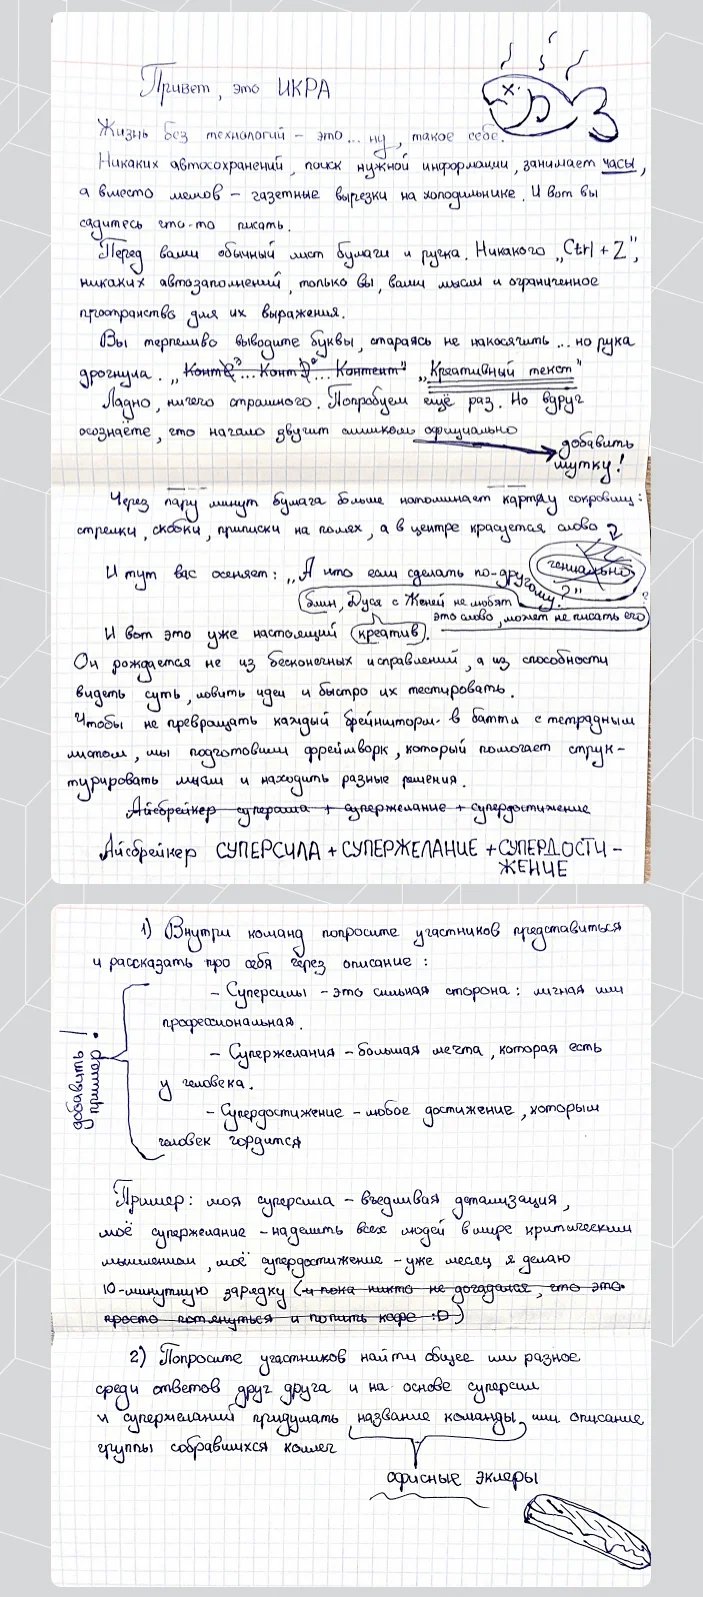 Привет, это ИКРА
Жизнь без технологий – это... ну, такое себе.
Никаких автосохранений, поиск нужной информации, занимает часы,
а вместо мемов – газетные вырезки на холодильнике. И вот вы
садитесь что-то писать.
Перед вами обычный лист бумаги и ручка. Никакого „Ctrl + Z",
никаких автозаполнений, только вы, ваши мысли и ограниченное
пространство для их выражения.
Вы терпеливо выводите буквы, стараясь не накосячить ... но рука
дрогнула. „Конт ... Конт ... Контент" „Креативный текст"
Ладно, ничего страшного. Попробуем ещё раз. Но вдруг
осознаёте, что начало звучит слишком официально
добавить
шутку!
Через пару минут бумага больше напоминает картду сокровищ:
стрелки, скобки, приписки на полях, а в центре красуется слово
гениально
И тут вас осеняет: „А что если сделать по-другому?"
блин, Дуся с Женей не любят
это слово, может не писать его?
И вот это уже настоящий креатив.
Он рождается не из бесконечных исправлений, а из способности
видеть суть, ловить идеи и быстро их тестировать.
Чтобы не превращать каждый брейншторм в баттл с тетрадным
листом, мы подготовили фреймворк, который помогает струк-
турировать мысли и находить разные решения.
Айсбрейкер суперсила + супержелание + супердостижение
Айсбрейкер СУПЕРСИЛА + СУПЕРЖЕЛАНИЕ + СУПЕРДОСТИ-
ЖЕНИЕ
1) Внутри команд попросите участников представиться
и рассказать про себя через описание:
– Суперсилы – это сильная сторона: личная или
профессиональная.
– Супержелания – большая мечта, которая есть
у человека.
– Супердостижение – любое достижение, которым
человек гордится
добавить
пример!
Пример: моя суперсила – въедливая детализация,
моё супержелание – наделить всех людей в мире критическим
мышлением, моё супердостижение – уже месяц я делаю
10-минутную зарядку (и пока никто не догадался, что это
просто потянуться и попить кофе :D)
2) Попросите участников найти общее или разное
среди ответов друг друга и на основе суперсил
и супержеланий придумать название команды, или описание
группы собравшихся коллег
офисные эклеры